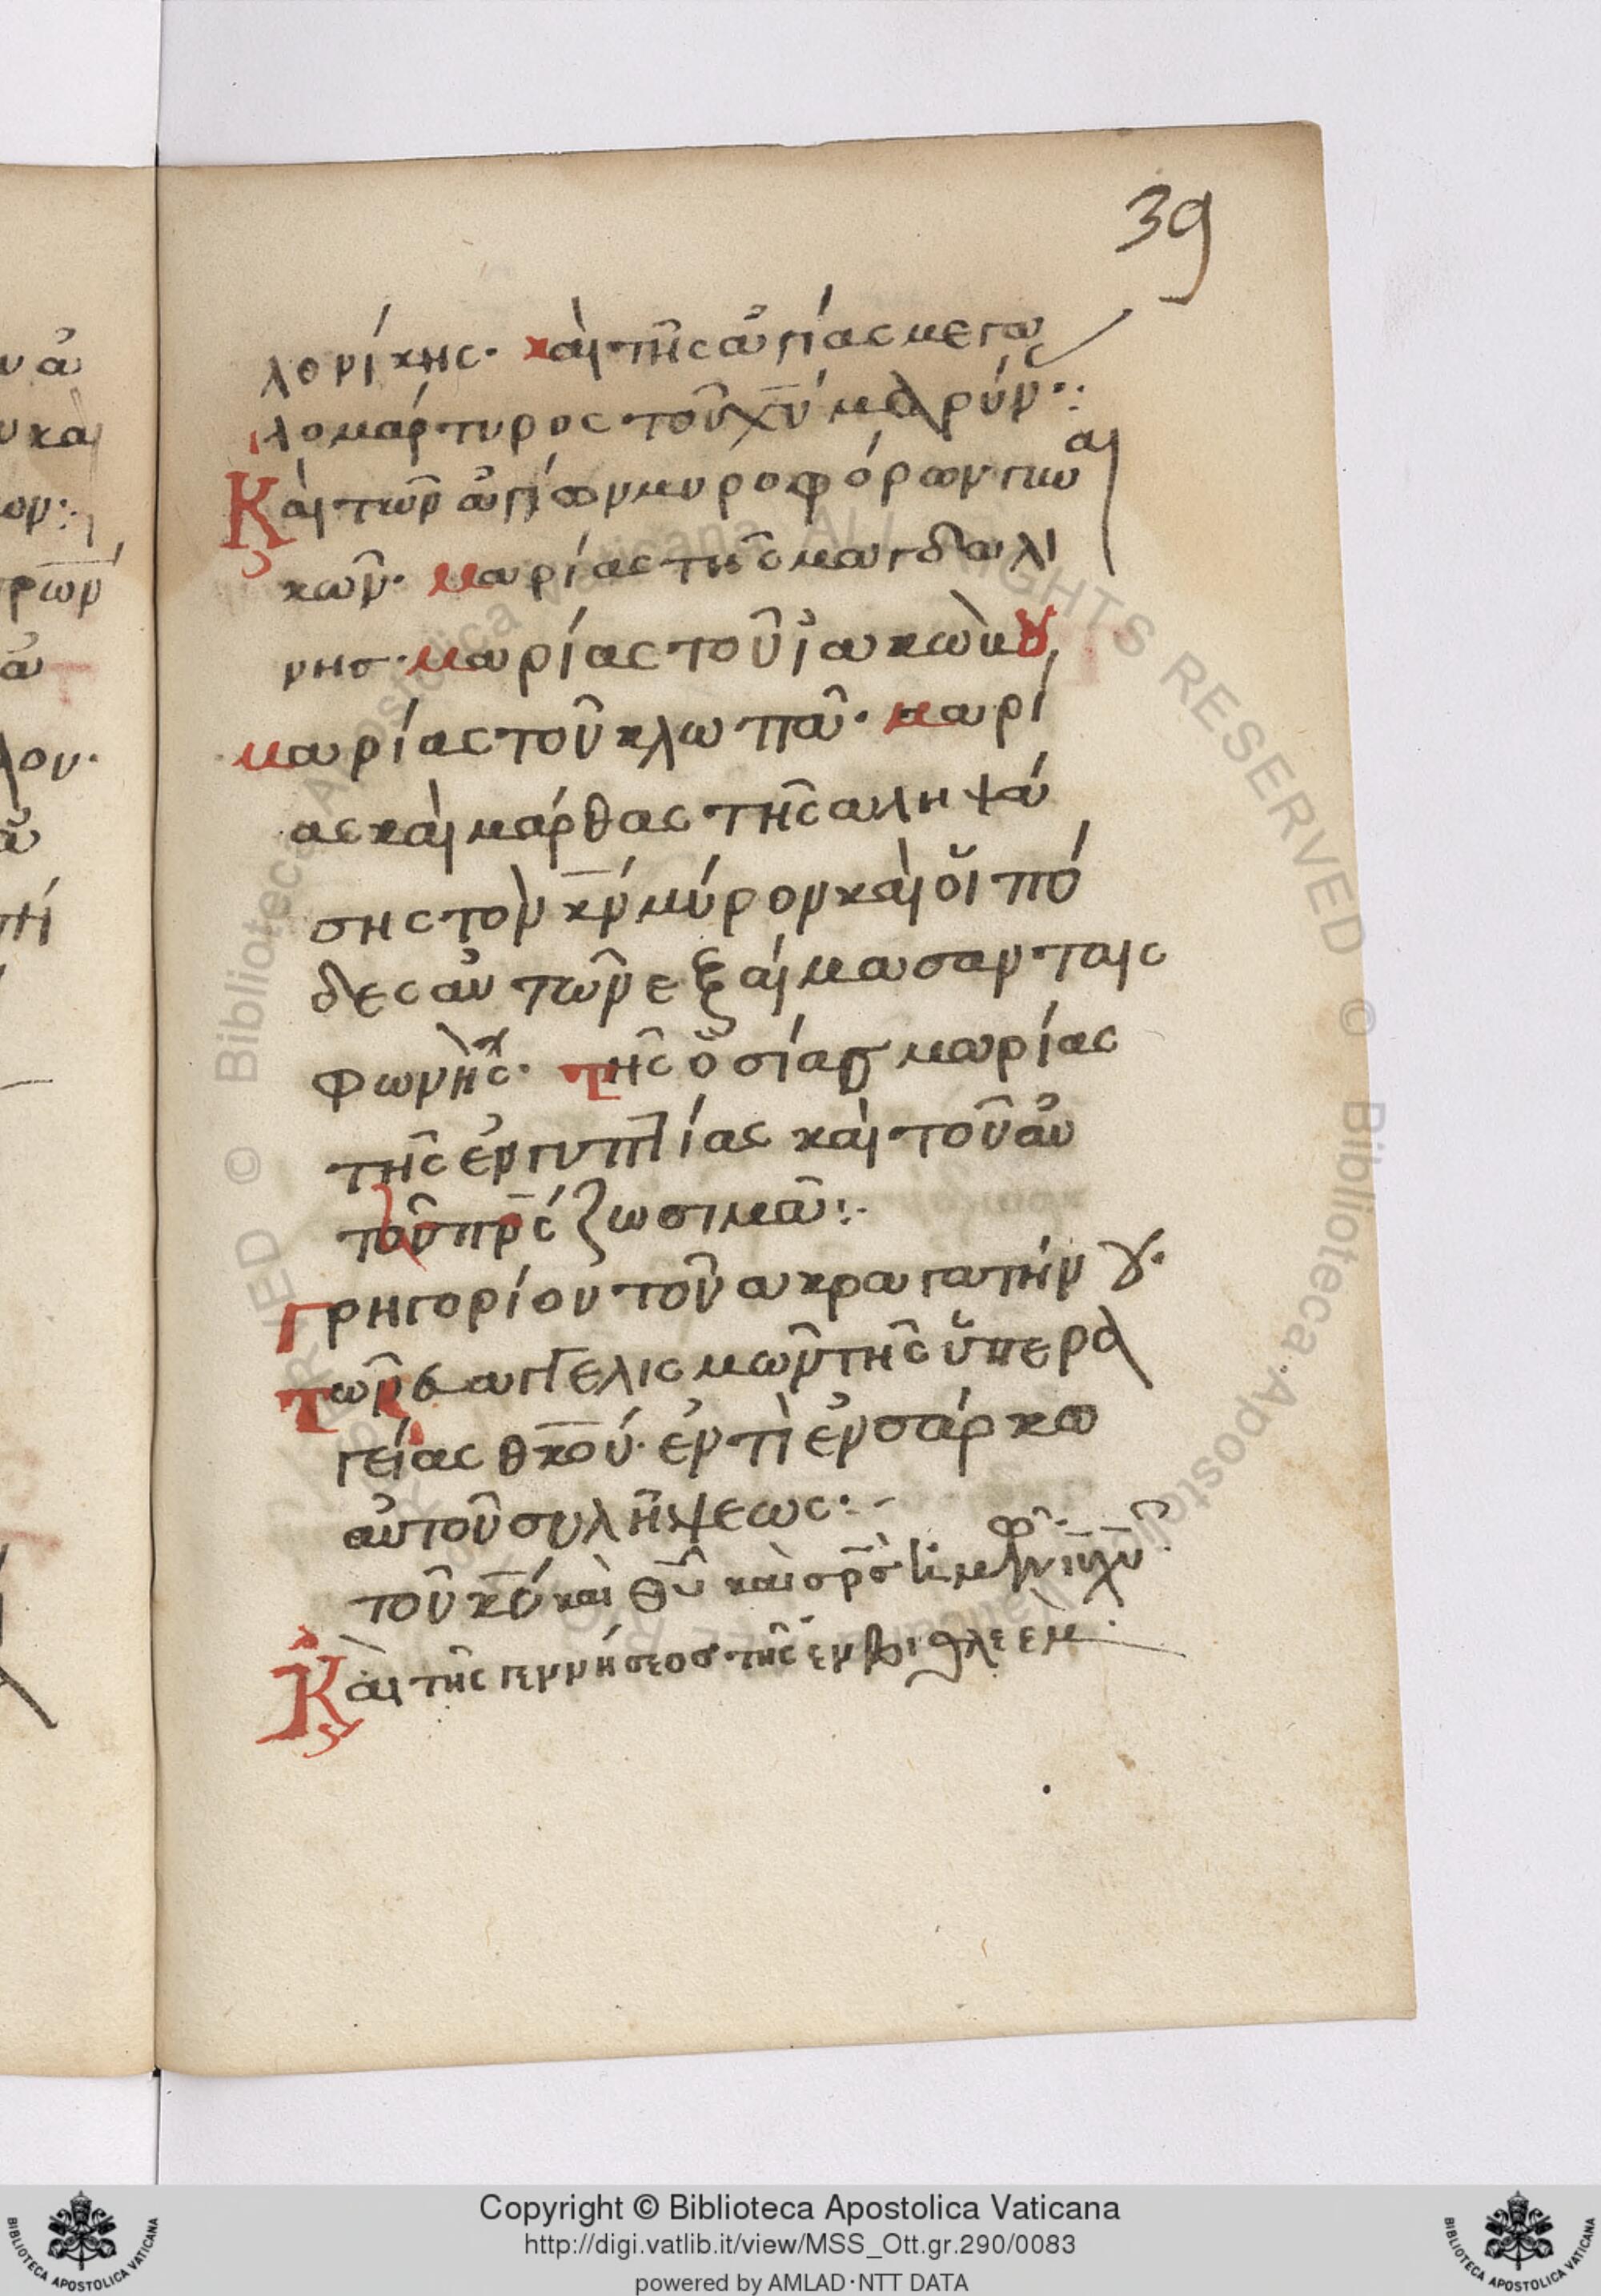 39
λονίκης. καὶ τῆς ἁγίας μεγα
λομάρτυρος τοῦ χ̅υ̅ μαρύν:
Καὶ τῶν ἁγίων μυροφόρων γυναι
κῶν. μαρίας τῆς μαγδαλι
νης. μαρίας τοῦ ἰακώβου
μαρίας τοῦ κλωπᾶ. μαρί
ας καὶ μάρθας τῆς αληψά
σης τὸν κ̅ν̅ μύρον καὶ οἵ πό
δες αυτῶν εξαίμασαν ταις
φωνῆς. τῆς ὁσίας μαρίας
τῆς ἐνγυπτίας καὶ τοῦ ἀυ
τοῦ π̅ρ̅ς ζωσιμᾶ:
Γρηγορίου τοῦ ακραγατήν
Τῶν ευαγγελισμῶν τῆς ὑπερα
γείας θ̅κ̅ου. ἐν τὶ ἐνσάρκω
αὐτοῦ συλήψεως:-
τοῦ κ̅υ̅ καὶ θ̅υ̅ καὶ σ̅ρ̅ς ἡμῶν ι̅υ̅ χ̅υ̅
Καὶ τῆς γεννήσεος τῆς ἐν βιθλεὲμ.
ν ἁ
υ και
ων:
ρων
ἁ
λου.
Copyright © Biblioteca Apostolica Vaticana
http://digi.vatlib.it/view/MSS_Ott.gr.290/0083
powered by AMLAD·NTT DATA
BIBLIOTECA APOSTOLICA VATICANA
BIBLIOTECA APOSTOLICA VATICANA